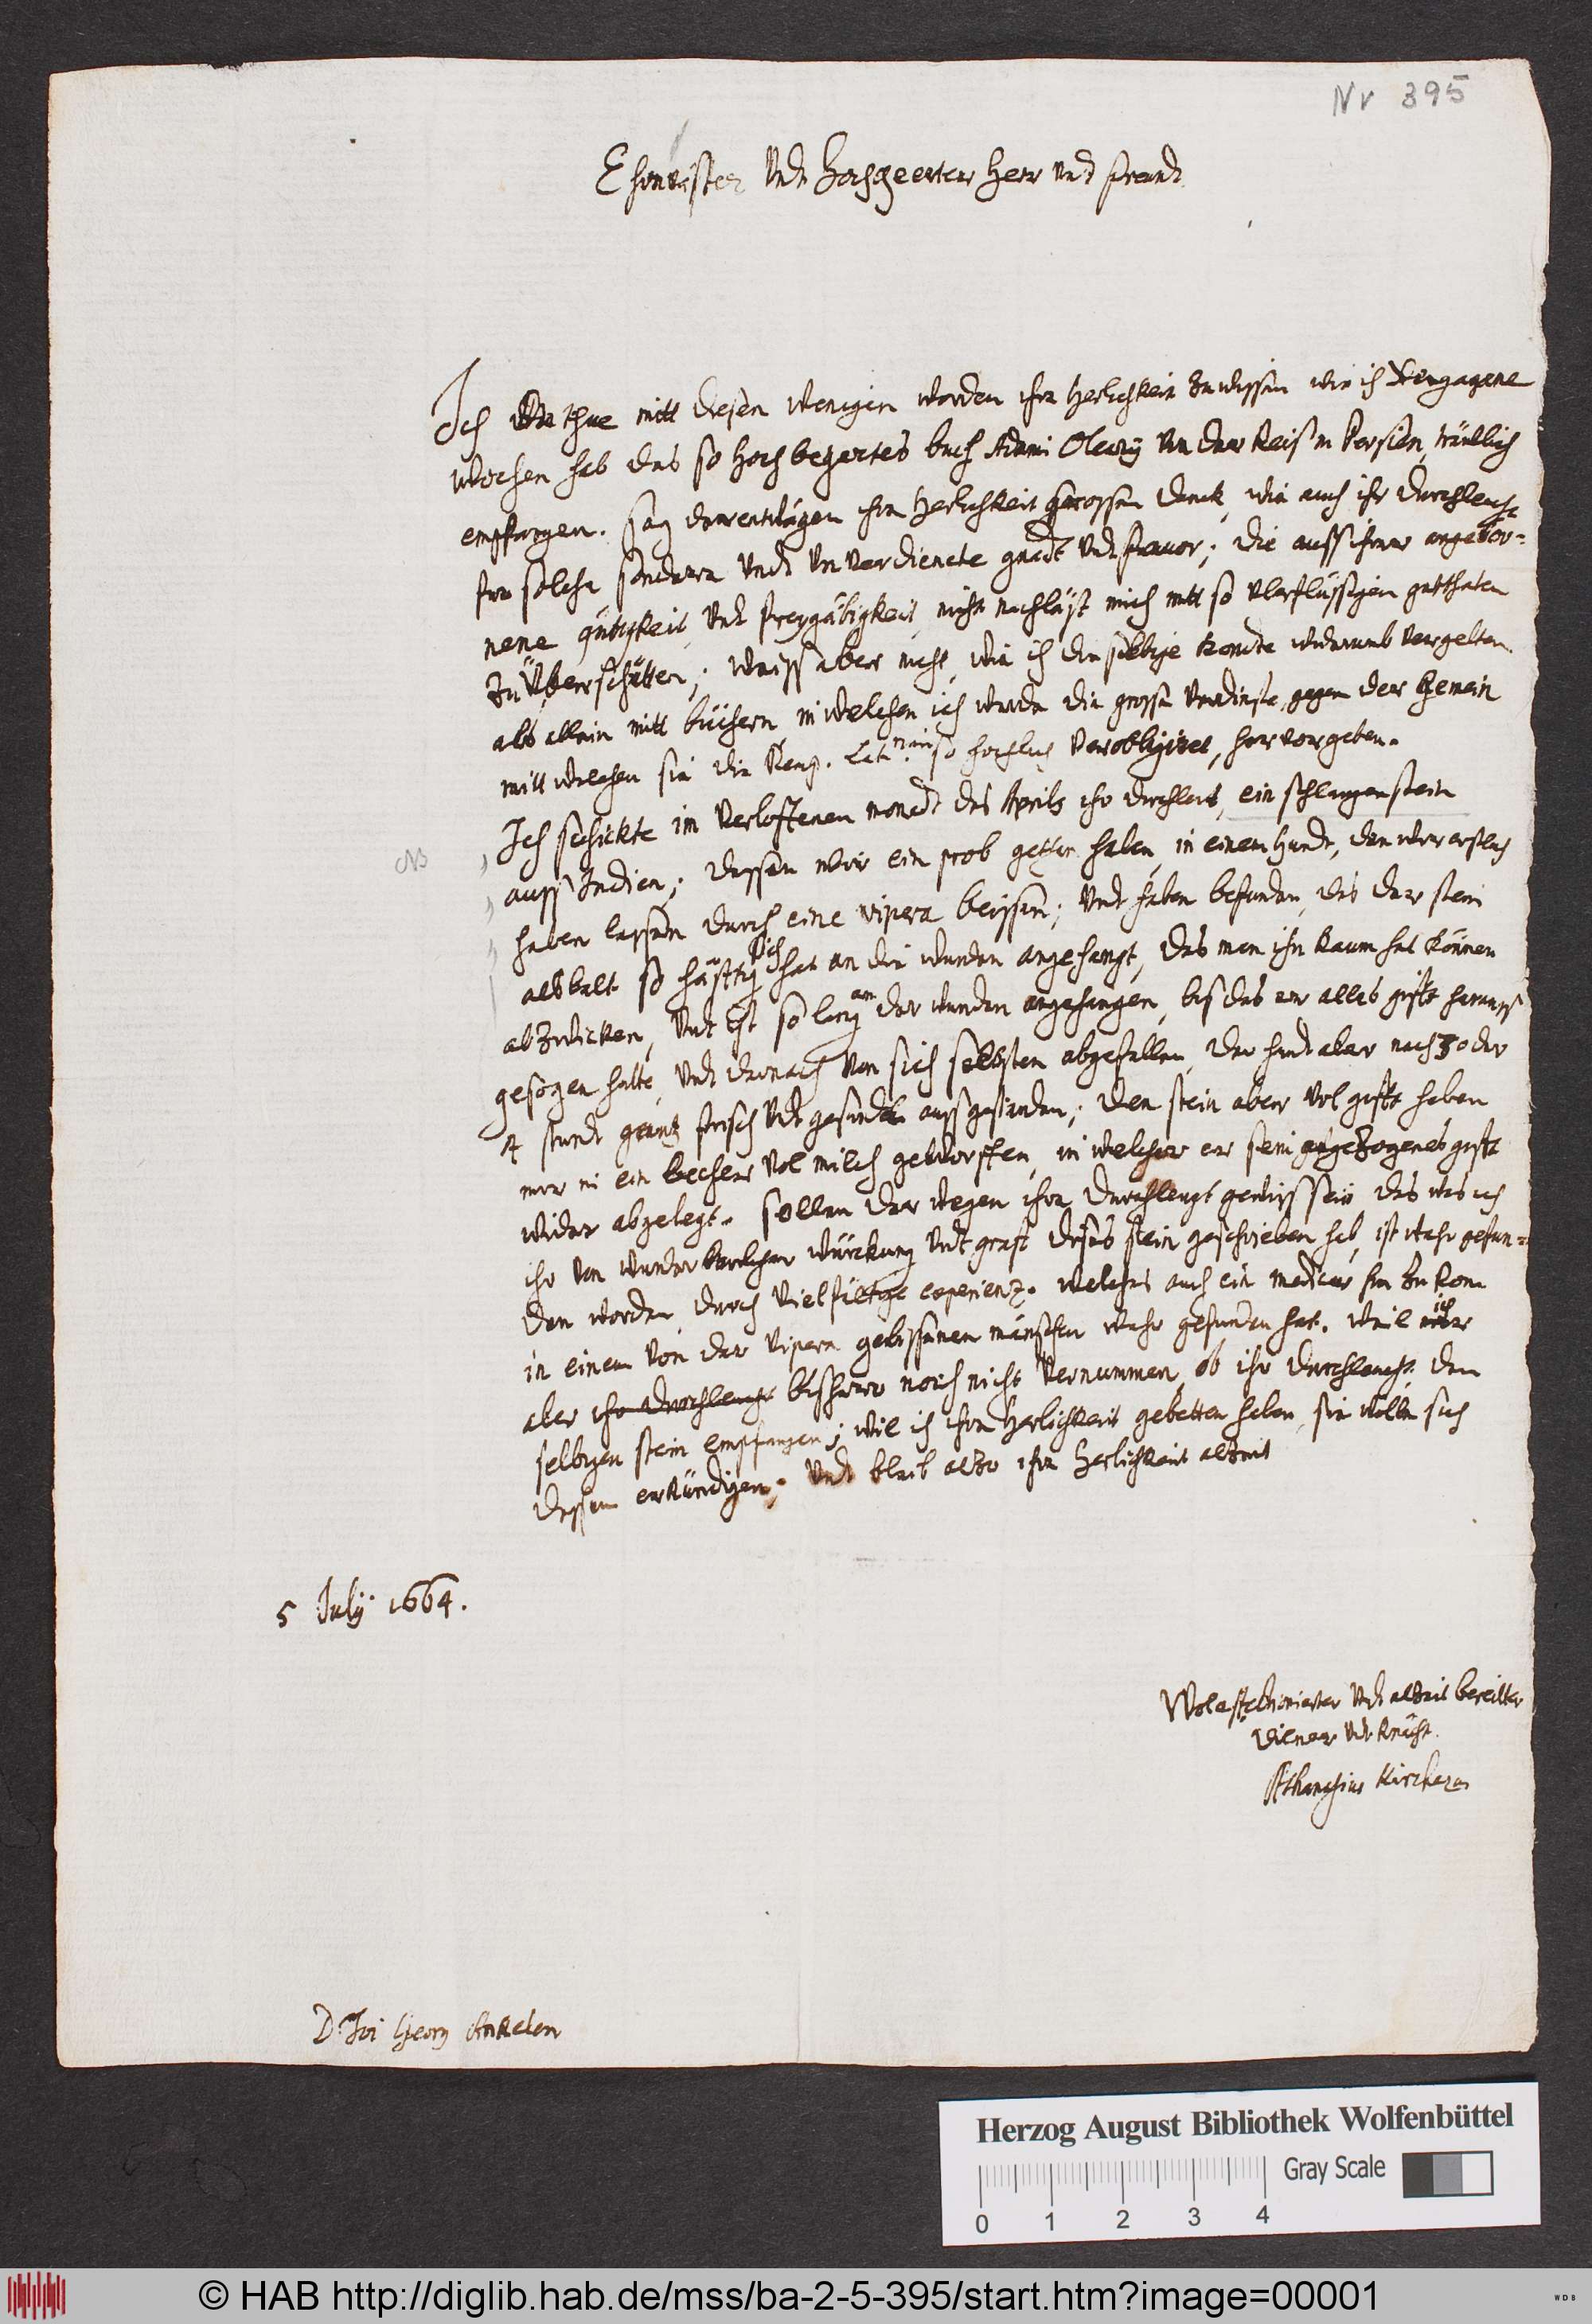 Nr 395
Ehrnvister Undt Hochgeerter Herr und freundt
Ich thue mitt diesen wenigen worden ihre Herlichkeit zu wissen wie ich Vergangene
wochen hab das so hoch begertes buch Adami Olearij von der Reis in Persien, träulich
empfangen. sag derentwägen ihre Herlichkeit grossen danck, wie auch ihr Durchleucht
fur solche sondere undt unverdiente gnadt undt favor; die auss ihrer angebor-
nene gütigkeit, undt freygäbigkeit, nicht nachläst mich mitt so überflüssigen gutthaten
zu überschütten; weiss aber nicht, wie ich dieselbige konte widerumb vergelten
als allein mitt büchern, in welchen ich werde die grosse verdinste, gegen der gemein
mitt welchen sie die so hochlich verobligiret, hervorgeben.
Ich schickte im verloffenen monadt des Aprils ihr durchleucht, ein schlangenstein
NB
auss Indien; dessen wir ein prob gethon haben, in einem Hundt, den wir erstlich
haben lassen durch eine vipera beissen; undt haben befunden, das der stein
alsbalt so häfftig sich hat an die wunden angehengt, das man ihn kaum hat können
abzwicken, undt ist so lang an der wunden angehangen, bis das er alles gifft herauss
gesogen hatte, undt darnach von sich selbsten abgefallen, der hundt aber nach 3 oder
4 stundt gantz frisch undt gesundt aufgestanden; den stein aber vol gifft haben
mir in ein becher vol milch geworffen, in welcher er sein angezogenes gifft
wider abgelegt. sollen derwegen ihre Durchleucht gewiss sein das was ich
ihr von wunderbarlicher würckung undt graft dises stein geschrieben hab, ist wahr gefun-
den worden, durch vielfältige experienz. welches auch ein medicus hie zu Rom
in einem von der vipera gebissenen mänschen wahr gefunden hat. weil ich
aber ihr Durchleucht bishero noch nicht vernummen, ob ihr Durchleucht den
selbigen stein empfangen; wil ich ihre Herlichkeit gebetten haben, sie wolle sich
dessen erkündigen. Undt bleib alzo ihre Herlichkeit alzeit
5 July 1664.
Wol affectionierter undt alzeit bereitter
diener undt knächt.
Athanasius Kircherus
D. Joi Georg Anckelen
Herzog August Bibliothek Wolfenbüttel
Gray Scale
0 1 2 3 4
© HAB http://diglib.hab.de/mss/ba-2-5-395/start.htm?image=00001
WDB